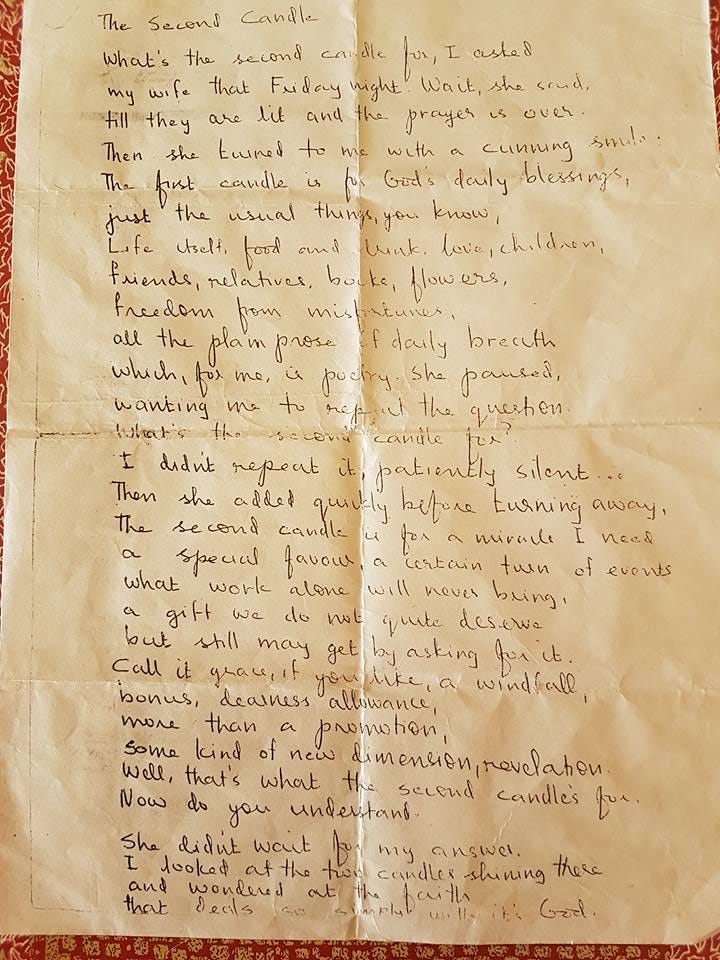 The Second Candle
What's the second candle for, I asked
my wife that Friday night. Wait, she said,
till they are lit and the prayer is over.
Then she turned to me with a cunning smile:
The first candle is for God's daily blessings,
just the usual things, you know,
Life itself, food and drink, love, children,
friends, relatives, books, flowers,
freedom from misfortunes,
all the plain prose of daily breath
which, for me, is poetry. She paused,
wanting me to repeat the question.
What's the second candle for?
I didn't repeat it, patiently silent...
Then she added quickly before turning away,
The second candle is for a miracle I need
a special favour, a certain turn of events
what work alone will never bring,
a gift we do not quite deserve
but still may get by asking for it.
Call it grace, if you like, a windfall,
bonus, dearness allowance,
more than a promotion,
some kind of new dimension, revelation.
Well, that's what the second candle's for.
Now do you understand.
She didn't wait for my answer.
I looked at the two candles shining there
and wondered at the faith
that deals so simply with it's God.